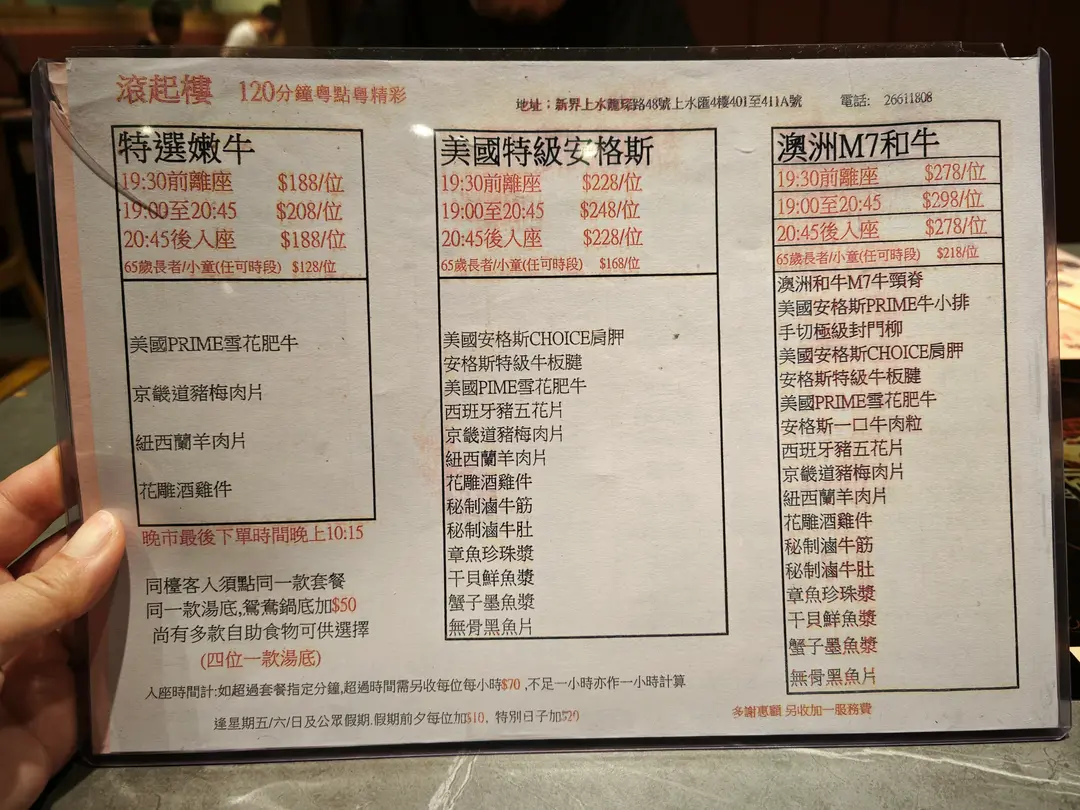 滾起樓 120分鐘粵點粵精彩
地址：新界上水龍琛路48號上水匯4樓401至411A號 電話: 26611808
特選嫩牛
19:30前離座 $188/位
19:00至20:45 $208/位
20:45後入座 $188/位
65歲長者/小童(任可時段) $128/位
美國PRIME雪花肥牛
京畿道豬梅肉片
紐西蘭羊肉片
花雕酒雞件
晚市最後下單時間晚上10:15
同檯客入須點同一款套餐
同一款湯底,鴛鴦鍋底加$50
尚有多款自助食物可供選擇
(四位一款湯底)
美國特級安格斯
19:30前離座 $228/位
19:00至20:45 $248/位
20:45後入座 $228/位
65歲長者/小童(任可時段) $168/位
美國安格斯CHOICE肩胛
安格斯特級牛板腱
美國PIME雪花肥牛
西班牙豬五花片
京畿道豬梅肉片
紐西蘭羊肉片
花雕酒雞件
秘制滷牛筋
秘制滷牛肚
章魚珍珠漿
干貝鮮魚漿
蟹子墨魚漿
無骨黑魚片
澳洲M7和牛
19:30前離座 $278/位
19:00至20:45 $298/位
20:45後入座 $278/位
65歲長者/小童(任可時段) $218/位
澳洲和牛M7牛頸脊
美國安格斯PRIME牛小排
手切極級封門柳
美國安格斯CHOICE肩胛
安格斯特級牛板腱
美國PRIME雪花肥牛
安格斯一口牛肉粒
西班牙豬五花片
京畿道豬梅肉片
紐西蘭羊肉片
花雕酒雞件
秘制滷牛筋
秘制滷牛肚
章魚珍珠漿
干貝鮮魚漿
蟹子墨魚漿
無骨黑魚片
入座時間計:如超過套餐指定分鐘,超過時間需另收每位每小時$70 ,不足一小時亦作一小時計算
逢星期五/六/日及公眾假期.假期前夕每位加$10, 特別日子加$20
多謝惠顧 另收加一服務費